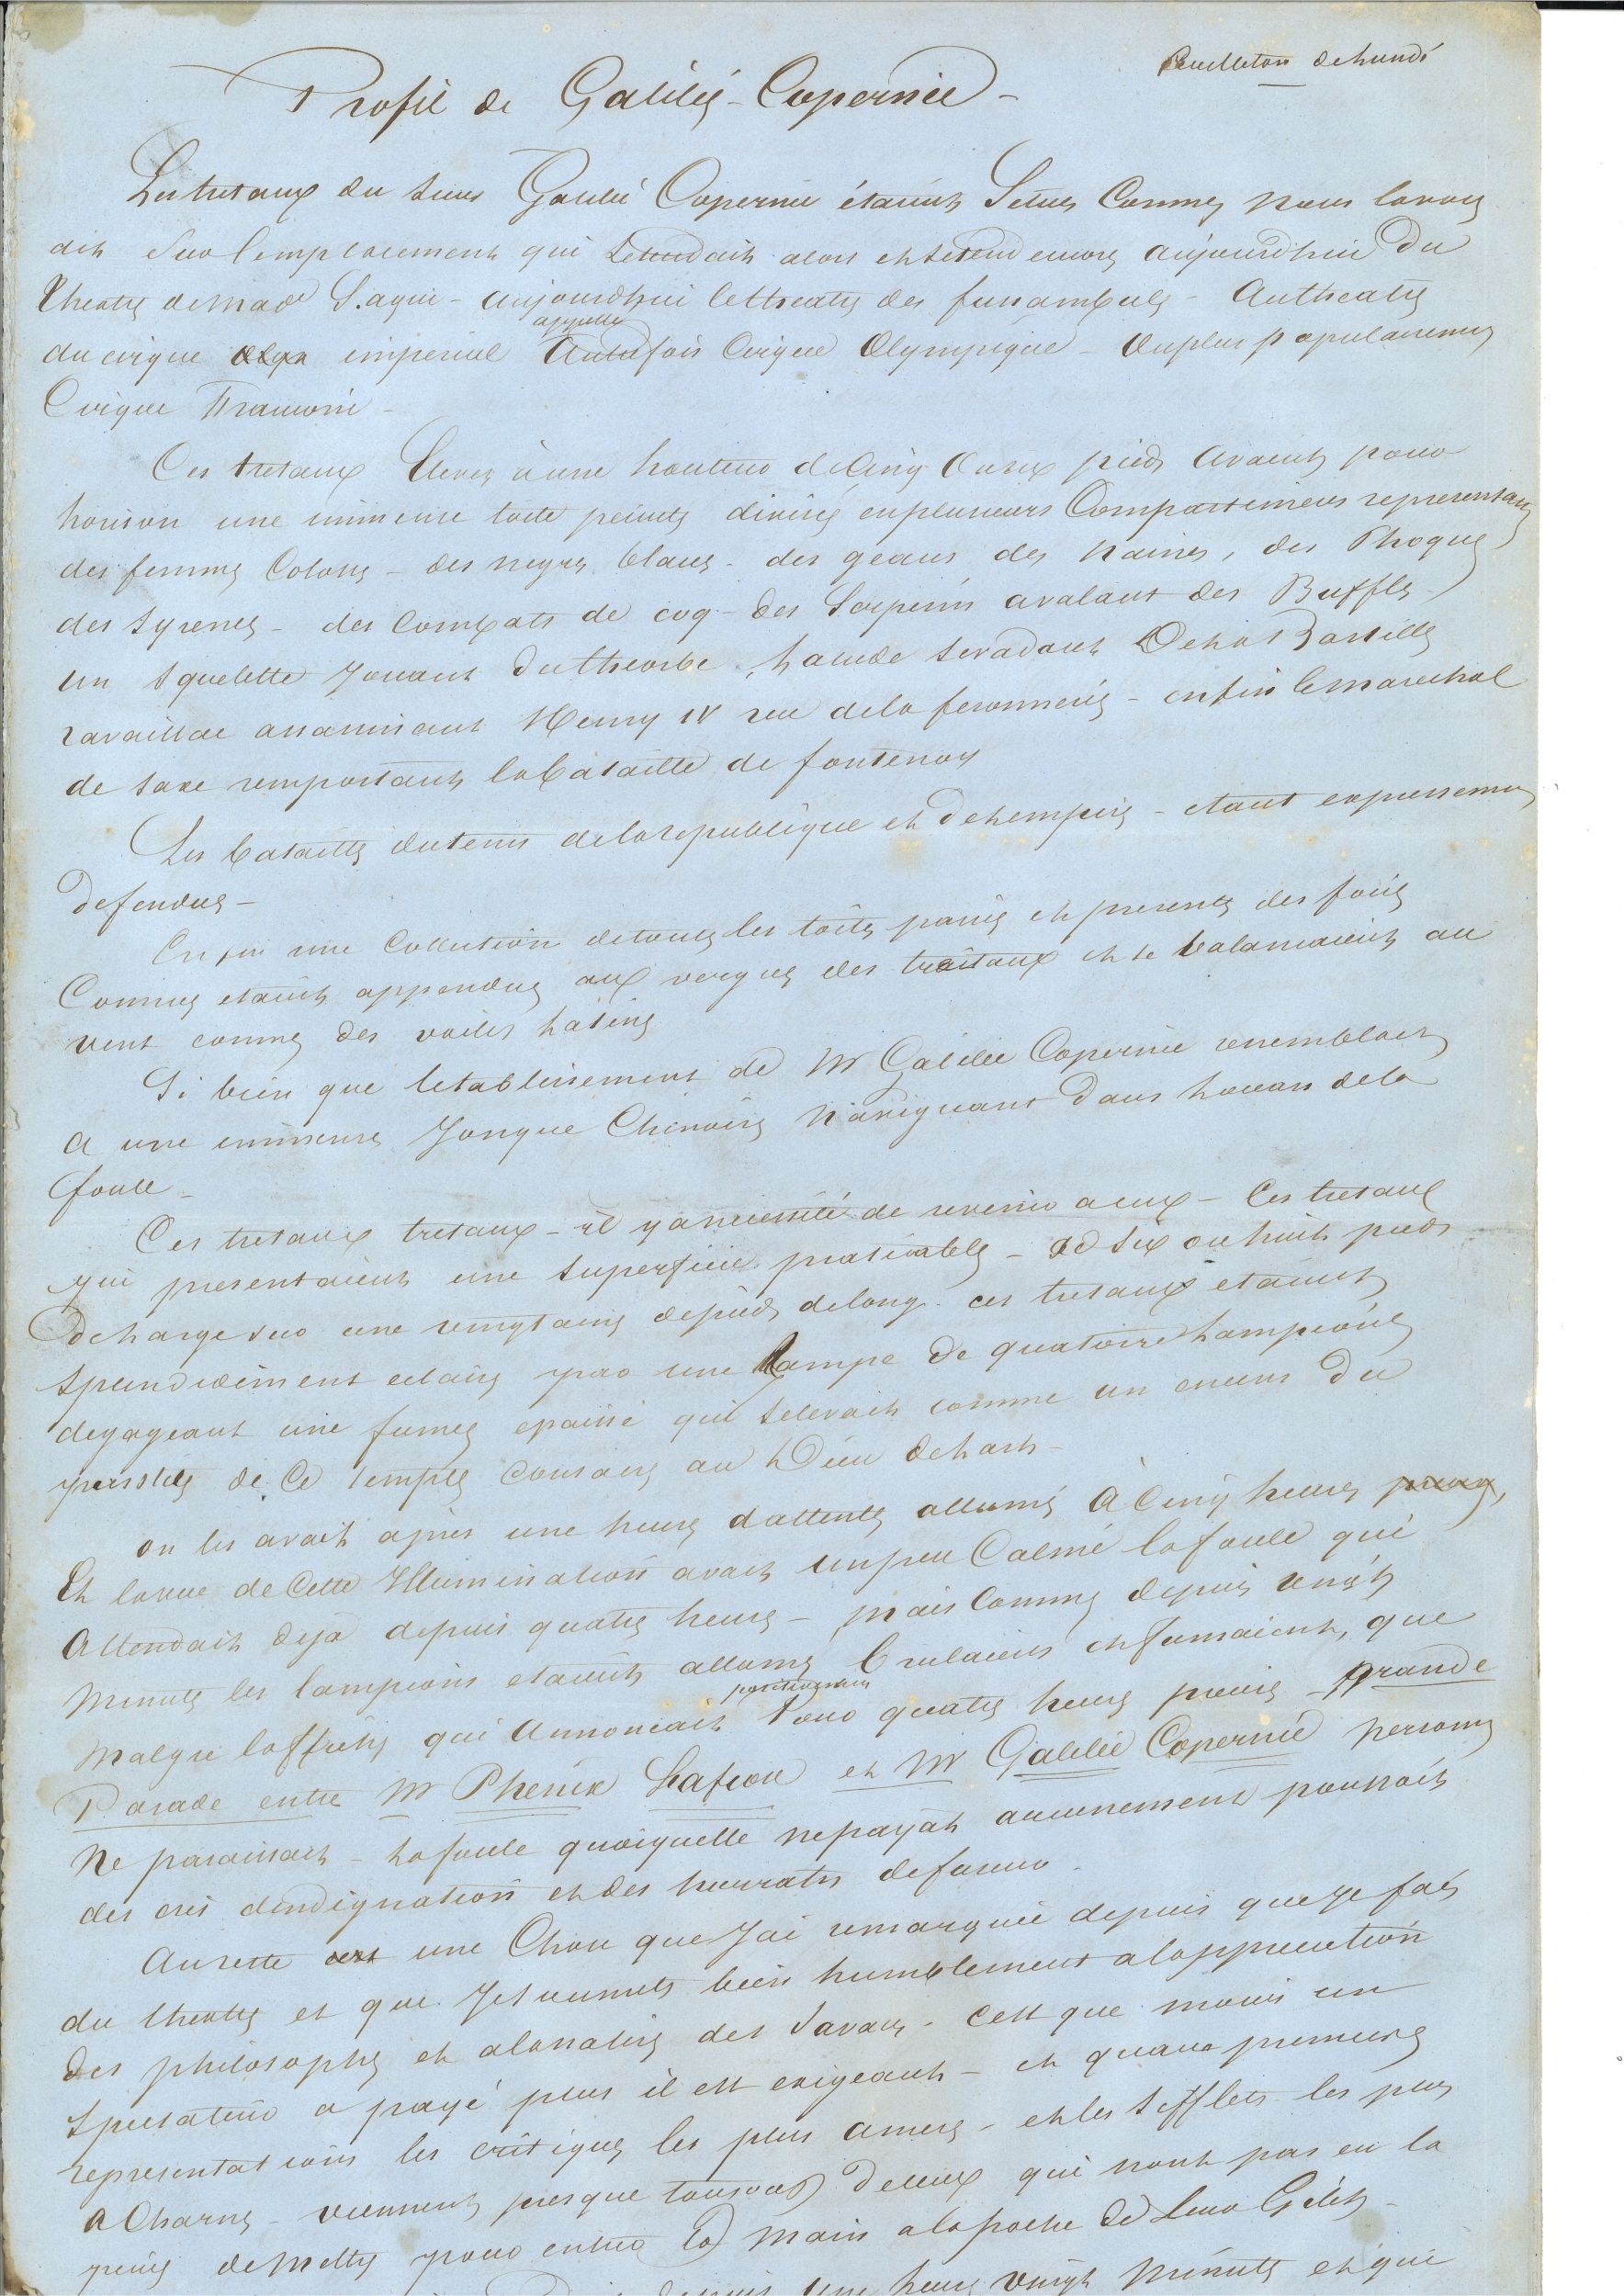 Feuilleton de Lundi
Profil de Galilée-Copernic -
Les tretaux du sieur Galilée Copernic étaient Situés Comme nous lavons
dit Sur lemplacement qui Setendait alors et setend encore aujourdhui du
theatre de Made Saqui - aujourdhui le theatre des funambules - Au theatre
du cirque imperial appelle
Autrefois Cirque Olympique - Ou plus populairement
Cirque Franconi -
Ces tretaux Eleves à une hauteur de Cinq Ou six pieds avaient pour
horison une immense toile peinte divisée en plusieurs Compartimens representant
des femmes Colosses - des negres blancs - des geans des naines, des Phoques
des syrenes - des Combats de coq - des Serpens avalant des Buffles -
un squelette Jouant du theorbe, Latude sevadant De la Bastille
ravaillac assassinant Henry IV rue de la feronnerie - enfin le marechal
de saxe remportant la bataille de fontenoy
Les batailles du tems de la republique et de Lempire - etant expressement
defendues -
Enfin une Collection de toutes les toiles passées et presentes des foires
Connues etaient appendues aux vergues des traitaux et se balancaient au
vent comme des voiles latines
Si bien que letablissement de Mr Galilée Copernic ressemblait
a une immense Jonque Chinoise Naviguant dans Locean de la
foule -
Ces tretaux tretaux - il y a necessité de revenir a eux - Ces tretaux
qui presentaient une superficie praticable - de six ou huit pieds
de large sur une vingtaine de pieds de long - ces tretaux etaient
splendidement eclairés par une Rampe de quatorze Lampions
degageant une fumée epaisse qui selevait comme un encens du
peristyle de Ce temple consacré au Dieu de Lart -
on les avait après une heure dattente allumés à Cinq heures
Et la vue de Cette Illumination avait un peu Calmé la foule qui
Attendait déja depuis quatre heures - mais Comme depuis vingt
Minutes les lampions etaient allumés brulaient et fumaient, que
Malgre laffiche qui Annoncait positivement
Pour quatre heures precises - grande
Parade entre Mr Phenix Lafleur et Mr Galilée Copernic personne
Ne paraissait - La foule quoiquelle ne payat aucunement poussait
des cris dindignation et des hurratis de fureur -
Au reste cest une Chose que Jai remarquée depuis que Je fais
du theatre et que Je soumets bien humblement a lappreciation
Des philosophes et a lanalise des savans - cest que moins un
spectateur a payé plus il est exigeant - et quaux premieres
representations les critiques les plus ameres - et les sifflets les plus
acharnés - viennent presque toujours de ceux qui nont pas eu la
peine de Mettre pour entrer la main a la poche de Leur Gilet -
depuis une heure vingt minutes et qui